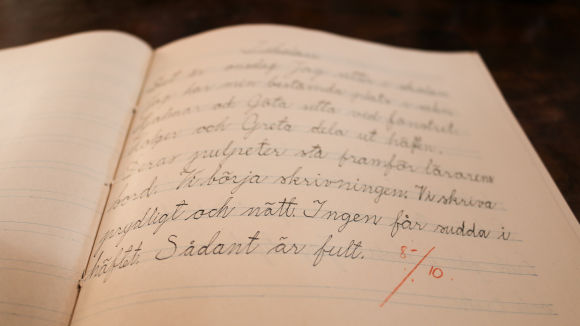 I skolan.
Det är onsdag. Jag sitta i skolan.
Jag har min bestämda plats i salen.
och Gösta sitta vid fönstret.
Holger och Greta dela ut häften.
Deras pulpeter stå framför lärarens
bord. Vi börja skrivningen. Vi skriva
prydligt och nätt. Ingen får sudda i
häftet. Sådant är fult.
8-/10.